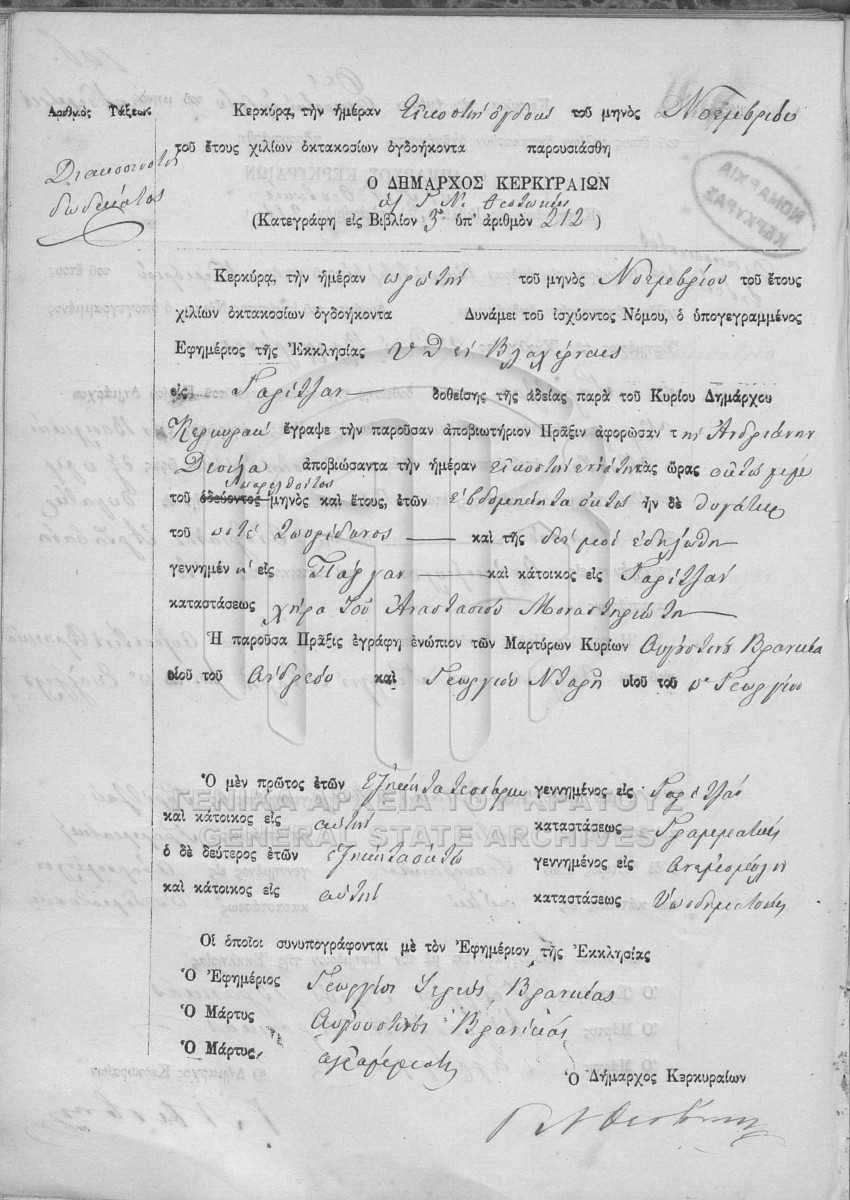 Ἀριθμὸς Τάξεως
Διακοσιοστὴ
δωδεκάτος
Κερκύρα, τὴν ἡμέραν Εἰκοστὴν ὀγδόην τοῦ μηνὸς Νοεμβρίου
τοῦ ἔτους χιλίων ὀκτακοσίων ὀγδοήκοντα παρουσιάσθη
Ὁ ΔΗΜΑΡΧΟΣ ΚΕΡΚΥΡΑΙΩΝ
Γ. Ν. Θεοτόκης
(Κατεγράφη εἰς Βιβλίον 3ον ὑπ' ἀριθμὸν 212)
ΝΟΜΑΡΧΙΑ
ΚΕΡΚΥΡΑΣ
Κερκύρα, τὴν ἡμέραν πρώτην τοῦ μηνὸς Νοεμβρίου τοῦ ἔτους
χιλίων ὀκτακοσίων ὀγδοήκοντα Δυνάμει τοῦ ἰσχύοντος Νόμου, ὁ ὑπογεγραμμένος
Ἐφημέριος τῆς Ἐκκλησίας Υ Θ ἐν Βλαχέρναις
εἰς Γαρίτζαν δοθείσης τῆς ἀδείας παρὰ τοῦ Κυρίου Δημάρχου
Κερκυραίων ἔγραψε τὴν παροῦσαν ἀποβιωτήριον Πρᾶξιν ἀφορῶσαν τὴν Ἀνδριάνην
Δεσύλα ἀποβιώσαντα τὴν ἡμέραν εἰκοστὴν ἐννάτην κὰς ὥρας ὀκτὼ μμ
παρελθόντος
τοῦ ὁδεύοντος μηνὸς καὶ ἔτους, ἐτῶν ἑβδομήκοντα ὀκτὼ ἦν δὲ θυγάτηρ
τοῦ ποτὲ Σπυρίδωνος καὶ τῆς δέν μοι ἐδηλώθη
γεννημένη εἰς Πάργαν καὶ κάτοικος εἰς Γαρίτζαν
καταστάσεως χήρα τοῦ Ἀναστασίου Μοναστηριώτη
Ἡ παροῦσα Πρᾶξις ἐγράφη ἐνώπιον τῶν Μαρτύρων Κυρίων Αὐγουστίνου Βρανικα
υἱοῦ τοῦ Ἀνδρέου καὶ Γεωργίου Νταρῆ υἱοῦ τοῦ πο Γεωργίου
Ὁ μὲν πρῶτος ἐτῶν ἑξήκοντα τεσσάρων γεννημένος εἰς Γαρίτζαν
καὶ κάτοικος εἰς αὐτὴν καταστάσεως Γραμματεὺς
ὁ δὲ δεύτερος ἐτῶν ἑξήκοντα ὀκτὼ γεννημένος εἰς Ἀνεμόμυλον
καὶ κάτοικος εἰς αὐτὴν καταστάσεως Ὑποδηματοποιὸς
Οἱ ὁποῖοι συνυπογράφονται μὲ τὸν Ἐφημέριον τῆς Ἐκκλησίας
Ὁ Ἐφημέριος Γεώργιος Ἱερεὺς Βρανικᾶς
Ὁ Μάρτυς Αὐγουστῖνος Βρανικᾶς
Ὁ Μάρτυς ἀγράμματος
Ὁ Δήμαρχος Κερκυραίων
Γ Ν Θεοτόκης
ΓΕΝΙΚΑ ΑΡΧΕΙΑ ΤΟΥ ΚΡΑΤΟΥΣ
GENERAL STATE ARCHIVES